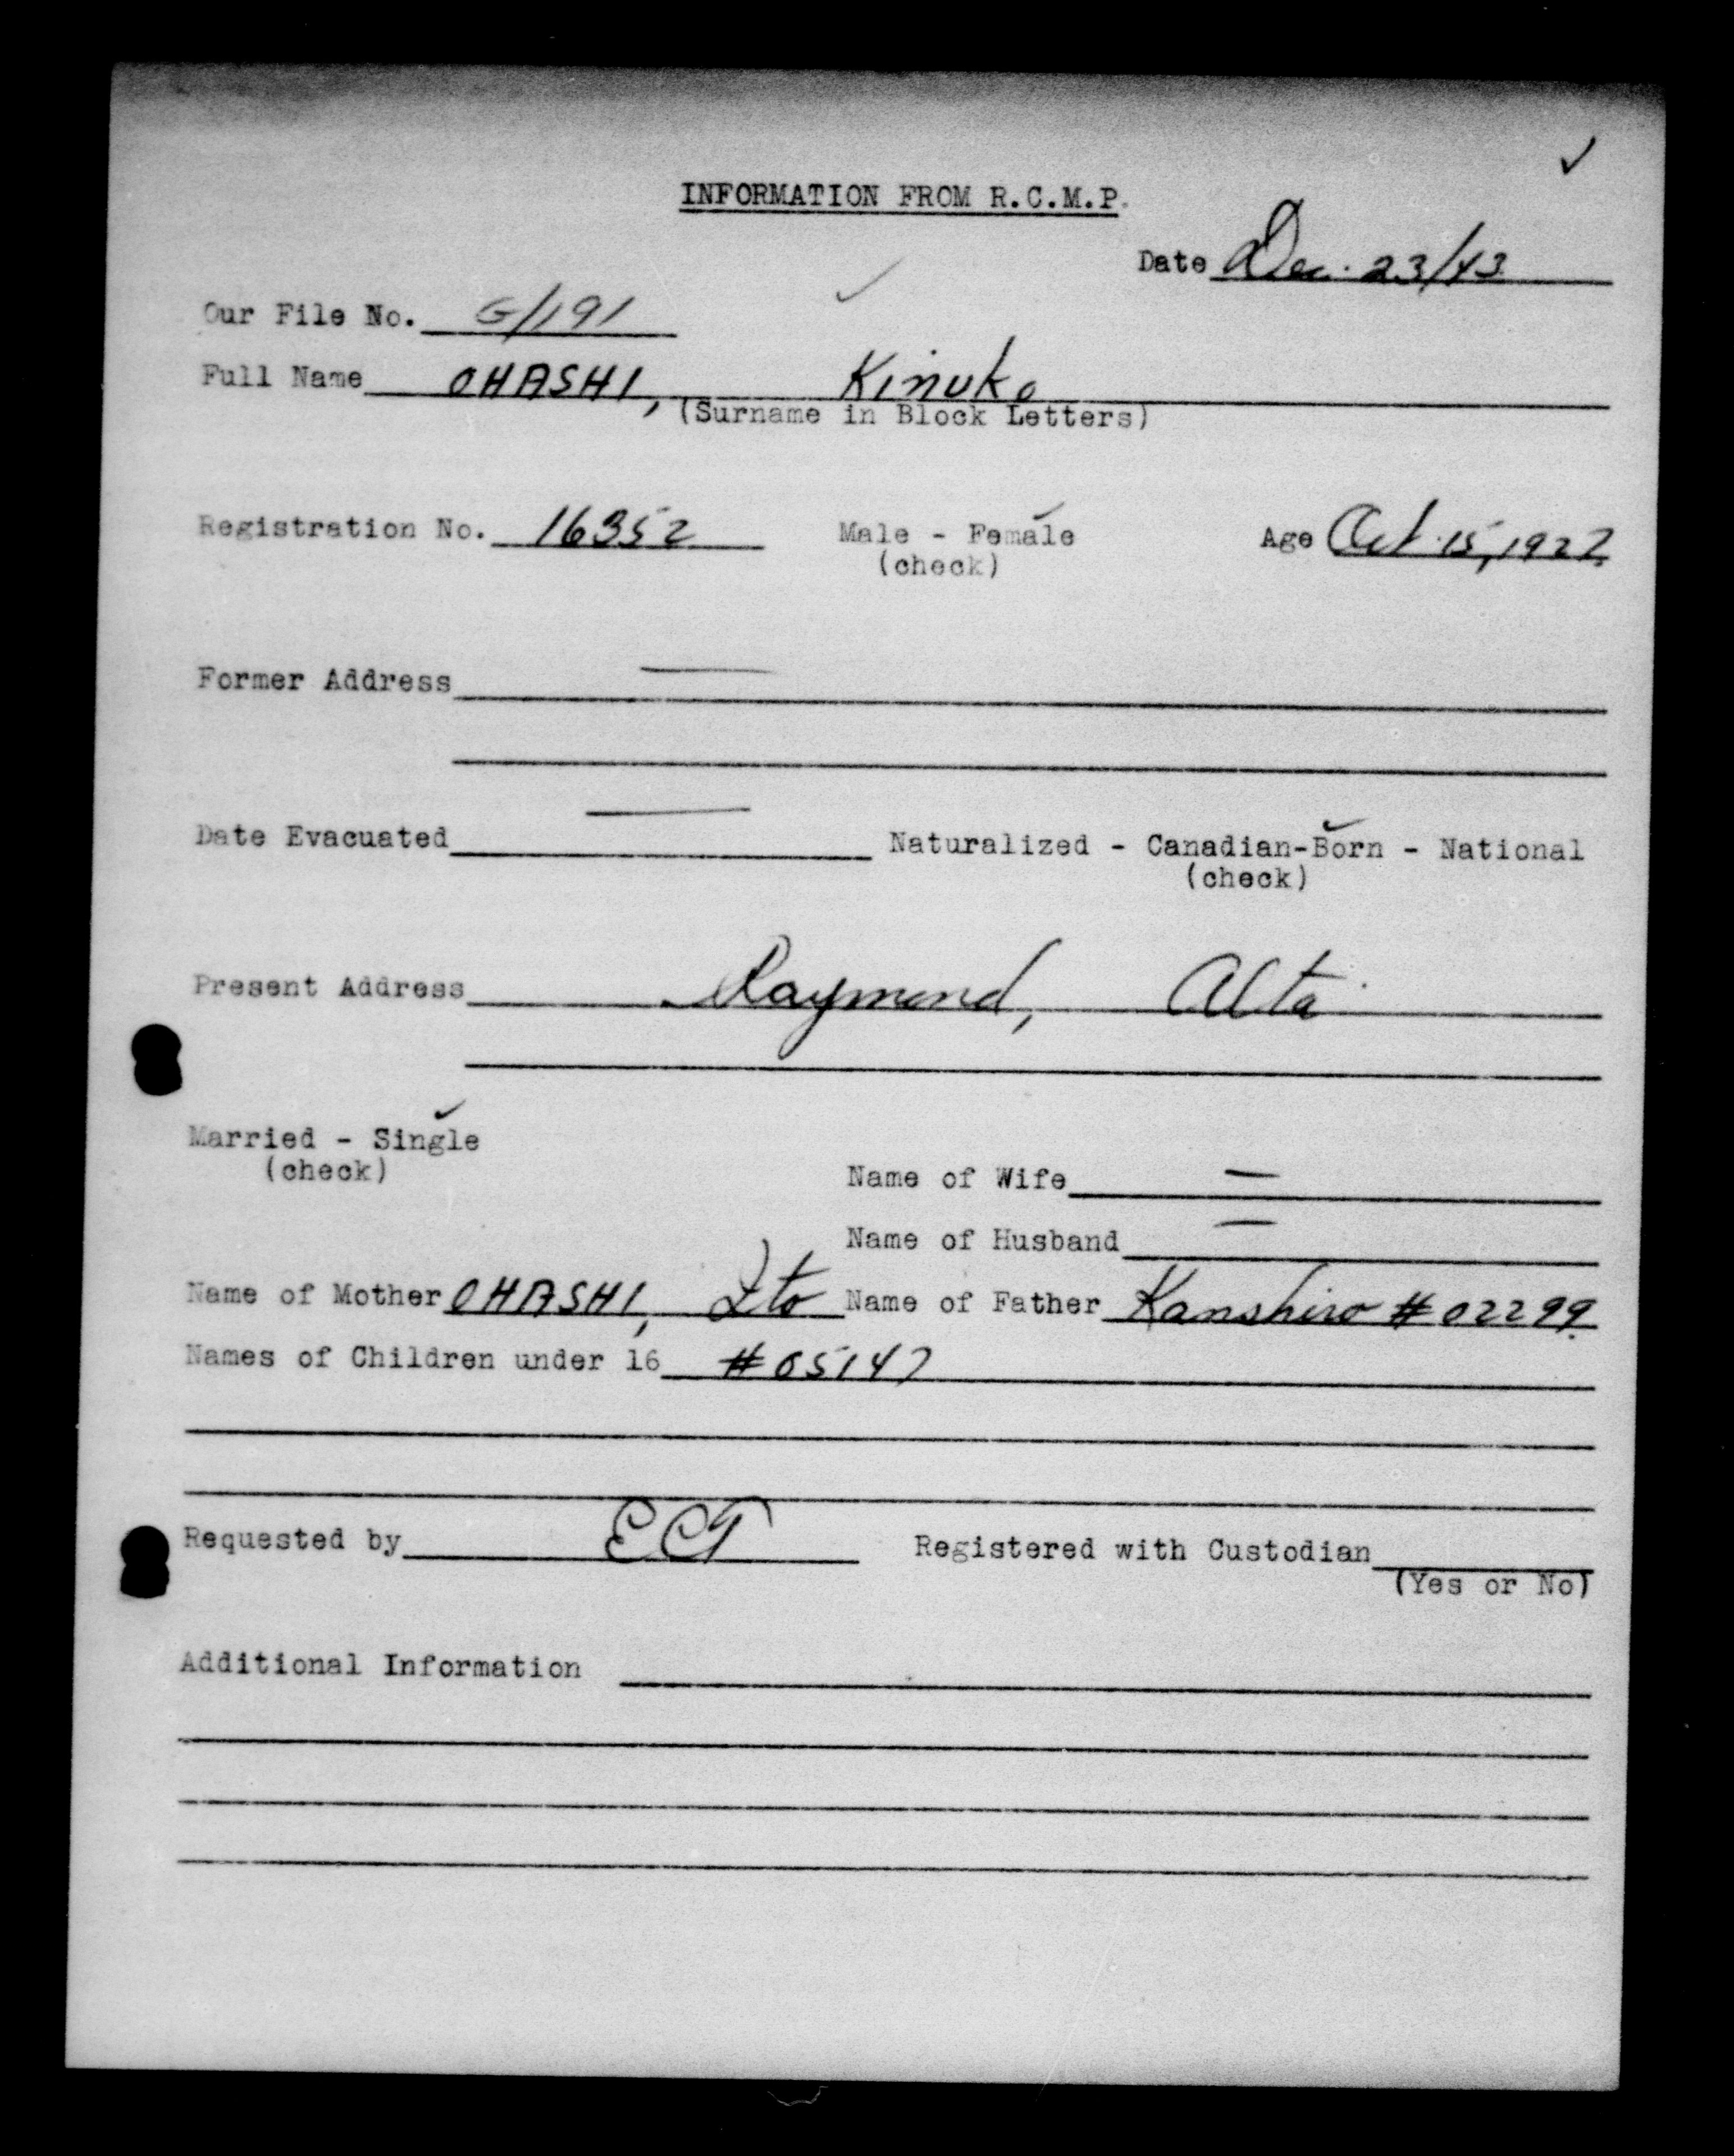 INFORMATION FROM R.C.M.P.
Date Dec. 23/43
Our File No. G/191
Full Name OHASHI, Kinuko
(Surname in Block Letters)
Registration No. 16352 Male - Female Age Oct. 15, 1927
(check)
Former Address —
Date Evacuated — Naturalized - Canadian-Born - National
(check)
Present Address Raymond, Alta.
Married - Single
(check)
Name of Wife —
Name of Husband —
Name of Mother OHASHI, Ito Name of Father Kanshiro # 02299
Names of Children under 16 # 05147
Requested by ECT Registered with Custodian
(Yes or No)
Additional Information